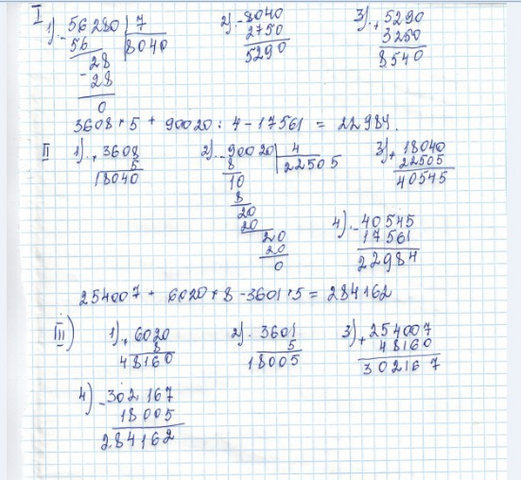 I 1) - 56280 | 7
56 8040
28
- 28
0
2) - 8040
2750
5290
3) + 5290
3250
8540
3608 * 5 + 90020 : 4 - 17561 = 22984.
II 1) * 3608
5
18040
2) - 90020 | 4
8 22505
10
8
20
20
20
20
0
3) + 18040
22505
40545
4) - 40545
17561
22984
254007 + 6020 * 8 - 3601 * 5 = 284162
III) 1) * 6020
8
48160
2) * 3601
5
18005
3) + 254007
48160
302167
4) - 302167
18005
284162